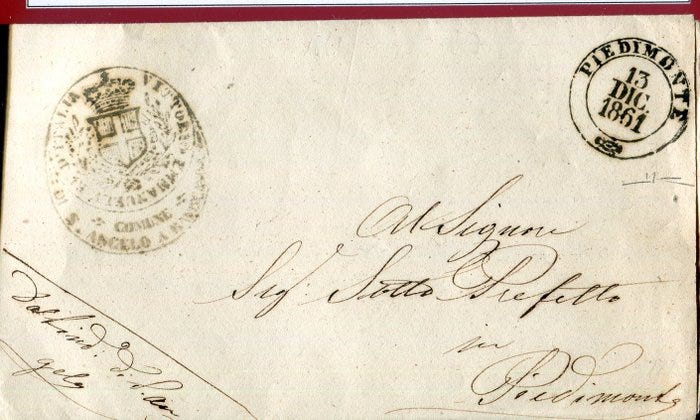 PIEDIMONTE
13
DIC.
1861
VITTORIO EMANUELE RE D'ITALIA
COMUNE
S. ANGELO A
Al Signore
Sig. Sotto Prefetto
in
Piedimonte
Dal Sind. di San
gelo